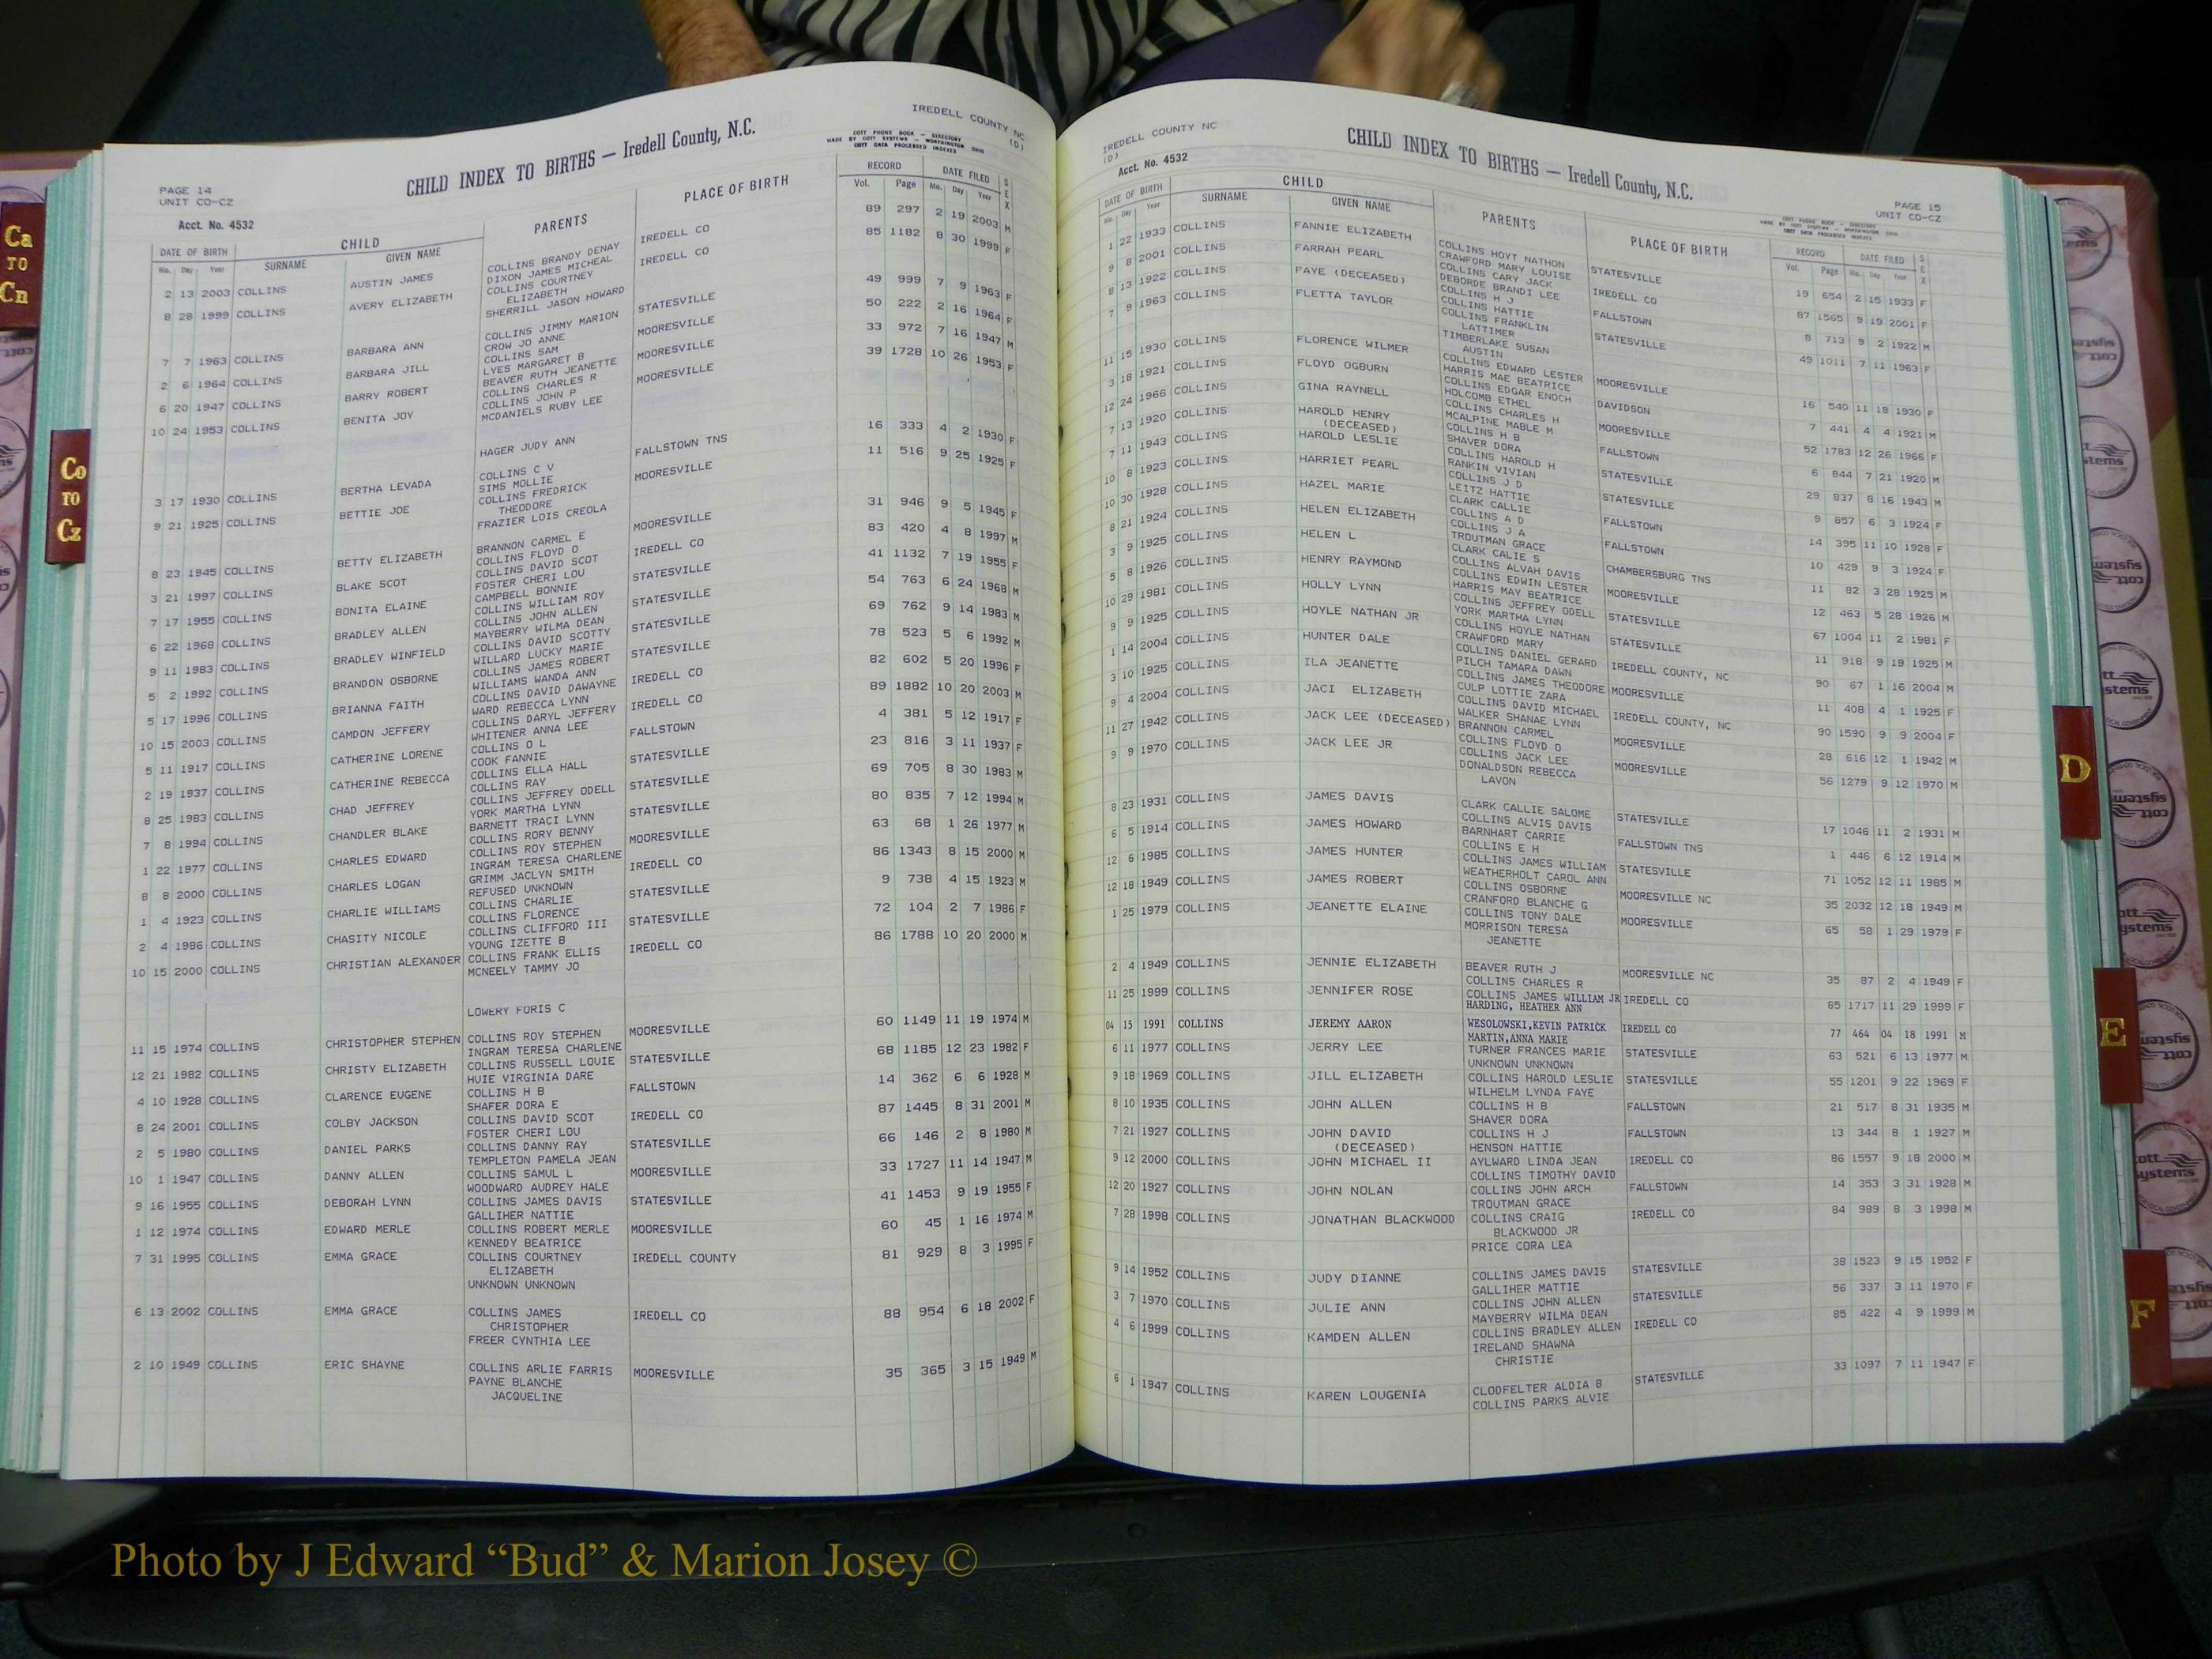 Ca
TO
Cn
Co
TO
Cz
PAGE 14
UNIT CO-CZ
Acct. No. 4532
CHILD INDEX TO BIRTHS — Iredell County, N.C.
IREDELL COUNTY NC
(D)
COTT PHONE BOOK — DIRECTORY
MADE BY COTT SYSTEMS — WORTHINGTON OHIO
COTT DATA PROCESSED INDEXES
DATE OF BIRTH CHILD PARENTS PLACE OF BIRTH RECORD DATE FILED SEX
Mo. Day Year SURNAME GIVEN NAME Vol. Page Mo. Day Year
2 13 2003 COLLINS AUSTIN JAMES COLLINS BRANDY DENAY IREDELL CO 89 297 2 19 2003 M
DIXON JAMES MICHEAL
8 28 1999 COLLINS AVERY ELIZABETH COLLINS COURTNEY IREDELL CO 85 1182 8 30 1999 F
ELIZABETH
SHERRILL JASON HOWARD
7 7 1963 COLLINS BARBARA ANN COLLINS JIMMY MARION STATESVILLE 49 999 7 9 1963 F
CROW JO ANNE
2 6 1964 COLLINS BARBARA JILL COLLINS SAM MOORESVILLE 50 222 2 16 1964 F
LYES MARGARET B
6 20 1947 COLLINS BARRY ROBERT BEAVER RUTH JEANETTE MOORESVILLE 33 972 7 16 1947 M
COLLINS CHARLES R
10 24 1953 COLLINS BENITA JOY COLLINS JOHN P MOORESVILLE 39 1728 10 26 1953 F
MCDANIELS RUBY LEE
HAGER JUDY ANN
3 17 1930 COLLINS BERTHA LEVADA COLLINS C V FALLSTOWN TNS 16 333 4 2 1930 F
SIMS MOLLIE
9 21 1925 COLLINS BETTIE JOE COLLINS FREDRICK MOORESVILLE 11 516 9 25 1925 F
THEODORE
FRAZIER LOIS CREOLA
8 23 1945 COLLINS BETTY ELIZABETH BRANNON CARMEL E MOORESVILLE 31 946 9 5 1945 F
COLLINS FLOYD O
3 21 1997 COLLINS BLAKE SCOT COLLINS DAVID SCOT IREDELL CO 83 420 4 8 1997 M
FOSTER CHERI LOU
7 17 1955 COLLINS BONITA ELAINE CAMPBELL BONNIE STATESVILLE 41 1132 7 19 1955 F
COLLINS WILLIAM ROY
6 22 1968 COLLINS BRADLEY ALLEN COLLINS JOHN ALLEN STATESVILLE 54 763 6 24 1968 M
MAYBERRY WILMA DEAN
9 11 1983 COLLINS BRADLEY WINFIELD COLLINS DAVID SCOTTY STATESVILLE 69 762 9 14 1983 M
WILLARD LUCKY MARIE
5 2 1992 COLLINS BRANDON OSBORNE COLLINS JAMES ROBERT STATESVILLE 78 523 5 6 1992 M
WILLIAMS WANDA ANN
5 17 1996 COLLINS BRIANNA FAITH COLLINS DAVID DAWAYNE IREDELL CO 82 602 5 20 1996 F
WARD REBECCA LYNN
10 15 2003 COLLINS CAMDON JEFFERY COLLINS DARYL JEFFERY IREDELL CO 89 1882 10 20 2003 M
WHITENER ANNA LEE
5 11 1917 COLLINS CATHERINE LORENE COLLINS O L FALLSTOWN 4 381 5 12 1917 F
COOK FANNIE
2 19 1937 COLLINS CATHERINE REBECCA COLLINS ELLA HALL STATESVILLE 23 816 3 11 1937 F
COLLINS RAY
8 25 1983 COLLINS CHAD JEFFREY COLLINS JEFFREY ODELL STATESVILLE 69 705 8 30 1983 M
YORK MARTHA LYNN
7 8 1994 COLLINS CHANDLER BLAKE BARNETT TRACI LYNN STATESVILLE 80 835 7 12 1994 M
COLLINS RORY BENNY
1 22 1977 COLLINS CHARLES EDWARD COLLINS ROY STEPHEN MOORESVILLE 63 68 1 26 1977 M
INGRAM TERESA CHARLENE
8 8 2000 COLLINS CHARLES LOGAN GRIMM JACLYN SMITH IREDELL CO 86 1343 8 15 2000 M
REFUSED UNKNOWN
1 4 1923 COLLINS CHARLIE WILLIAMS COLLINS CHARLIE STATESVILLE 9 738 4 15 1923 M
COLLINS FLORENCE
2 4 1986 COLLINS CHASITY NICOLE COLLINS CLIFFORD III STATESVILLE 72 104 2 7 1986 F
YOUNG IZETTE B
10 15 2000 COLLINS CHRISTIAN ALEXANDER COLLINS FRANK ELLIS IREDELL CO 86 1788 10 20 2000 M
MCNEELY TAMMY JO
LOWERY FORIS C
11 15 1974 COLLINS CHRISTOPHER STEPHEN COLLINS ROY STEPHEN MOORESVILLE 60 1149 11 19 1974 M
INGRAM TERESA CHARLENE
12 21 1982 COLLINS CHRISTY ELIZABETH COLLINS RUSSELL LOUIE STATESVILLE 68 1185 12 23 1982 F
HUIE VIRGINIA DARE
4 10 1928 COLLINS CLARENCE EUGENE COLLINS H B FALLSTOWN 14 362 6 6 1928 M
SHAFER DORA E
8 24 2001 COLLINS COLBY JACKSON COLLINS DAVID SCOT IREDELL CO 87 1445 8 31 2001 M
FOSTER CHERI LOU
2 5 1980 COLLINS DANIEL PARKS COLLINS DANNY RAY STATESVILLE 66 146 2 8 1980 M
TEMPLETON PAMELA JEAN
10 1 1947 COLLINS DANNY ALLEN COLLINS SAMUL L MOORESVILLE 33 1727 11 14 1947 M
WOODWARD AUDREY HALE
9 16 1955 COLLINS DEBORAH LYNN COLLINS JAMES DAVIS STATESVILLE 41 1453 9 19 1955 F
GALLIHER NATTIE
1 12 1974 COLLINS EDWARD MERLE COLLINS ROBERT MERLE MOORESVILLE 60 45 1 16 1974 M
KENNEDY BEATRICE
7 31 1995 COLLINS EMMA GRACE COLLINS COURTNEY IREDELL COUNTY 81 929 8 3 1995 F
ELIZABETH
UNKNOWN UNKNOWN
6 13 2002 COLLINS EMMA GRACE COLLINS JAMES IREDELL CO 88 954 6 18 2002 F
CHRISTOPHER
FREER CYNTHIA LEE
2 10 1949 COLLINS ERIC SHAYNE COLLINS ARLIE FARRIS MOORESVILLE 35 365 3 15 1949 M
PAYNE BLANCHE
JACQUELINE
IREDELL COUNTY NC
(D)
Acct. No. 4532
CHILD INDEX TO BIRTHS — Iredell County, N.C.
PAGE 15
UNIT CO-CZ
COTT PHONE BOOK — DIRECTORY
MADE BY COTT SYSTEMS — WORTHINGTON OHIO
COTT DATA PROCESSED INDEXES
DATE OF BIRTH CHILD PARENTS PLACE OF BIRTH RECORD DATE FILED SEX
Mo. Day Year SURNAME GIVEN NAME Vol. Page Mo. Day Year
1 22 1933 COLLINS FANNIE ELIZABETH COLLINS HOYT NATHON STATESVILLE 19 654 2 15 1933 F
CRAWFORD MARY LOUISE
9 8 2001 COLLINS FARRAH PEARL COLLINS CARY JACK IREDELL CO 87 1565 9 19 2001 F
DEBORDE BRANDI LEE
8 13 1922 COLLINS FAYE (DECEASED) COLLINS H J FALLSTOWN 8 713 9 2 1922 M
COLLINS HATTIE
7 9 1963 COLLINS FLETTA TAYLOR COLLINS FRANKLIN STATESVILLE 49 1011 7 11 1963 F
LATTIMER
TIMBERLAKE SUSAN
AUSTIN
11 15 1930 COLLINS FLORENCE WILMER COLLINS EDWARD LESTER MOORESVILLE 16 540 11 18 1930 F
HARRIS MAE BEATRICE
3 18 1921 COLLINS FLOYD OGBURN COLLINS EDGAR ENOCH DAVIDSON 7 441 4 4 1921 M
HOLCOMB ETHEL
12 24 1966 COLLINS GINA RAYNELL COLLINS CHARLES H MOORESVILLE 52 1783 12 26 1966 F
MCALPINE MABLE M
7 13 1920 COLLINS HAROLD HENRY COLLINS H B FALLSTOWN 6 844 7 21 1920 M
(DECEASED) SHAVER DORA
7 11 1943 COLLINS HAROLD LESLIE COLLINS HAROLD H STATESVILLE 29 837 8 16 1943 M
RANKIN VIVIAN
10 8 1923 COLLINS HARRIET PEARL COLLINS J D STATESVILLE 9 857 6 3 1924 F
LEITZ HATTIE
10 30 1928 COLLINS HAZEL MARIE CLARK CALLIE FALLSTOWN 14 395 11 10 1928 F
COLLINS A D
8 21 1924 COLLINS HELEN ELIZABETH COLLINS J A FALLSTOWN 10 429 9 3 1924 F
TROUTMAN GRACE
3 9 1925 COLLINS HELEN L CLARK CALIE S CHAMBERSBURG TNS 11 82 3 28 1925 M
COLLINS ALVAH DAVIS
5 8 1926 COLLINS HENRY RAYMOND COLLINS EDWIN LESTER MOORESVILLE 12 463 5 28 1926 M
HARRIS MAY BEATRICE
10 29 1981 COLLINS HOLLY LYNN COLLINS JEFFREY ODELL STATESVILLE 67 1004 11 2 1981 F
YORK MARTHA LYNN
9 9 1925 COLLINS HOYLE NATHAN JR COLLINS HOYLE NATHAN STATESVILLE 11 918 9 19 1925 M
CRAWFORD MARY
1 14 2004 COLLINS HUNTER DALE COLLINS DANIEL GERARD IREDELL COUNTY, NC 90 67 1 16 2004 M
PILCH TAMARA DAWN
3 10 1925 COLLINS ILA JEANETTE COLLINS JAMES THEODORE MOORESVILLE 11 408 4 1 1925 F
CULP LOTTIE ZARA
9 4 2004 COLLINS JACI ELIZABETH COLLINS DAVID MICHAEL IREDELL COUNTY, NC 90 1590 9 9 2004 F
WALKER SHANAE LYNN
11 27 1942 COLLINS JACK LEE (DECEASED) BRANNON CARMEL MOORESVILLE 28 616 12 1 1942 M
COLLINS FLOYD O
9 9 1970 COLLINS JACK LEE JR COLLINS JACK LEE MOORESVILLE 56 1279 9 12 1970 M
DONALDSON REBECCA
LAVON
8 23 1931 COLLINS JAMES DAVIS CLARK CALLIE SALOME STATESVILLE 17 1046 11 2 1931 M
COLLINS ALVIS DAVIS
6 5 1914 COLLINS JAMES HOWARD BARNHART CARRIE FALLSTOWN TNS 1 446 6 12 1914 M
COLLINS E H
12 6 1985 COLLINS JAMES HUNTER COLLINS JAMES WILLIAM STATESVILLE 71 1052 12 11 1985 M
WEATHERHOLT CAROL ANN
12 18 1949 COLLINS JAMES ROBERT COLLINS OSBORNE MOORESVILLE NC 35 2032 12 18 1949 M
CRANFORD BLANCHE G
1 25 1979 COLLINS JEANETTE ELAINE COLLINS TONY DALE MOORESVILLE 65 58 1 29 1979 F
MORRISON TERESA
JEANETTE
2 4 1949 COLLINS JENNIE ELIZABETH BEAVER RUTH J MOORESVILLE NC 35 87 2 4 1949 F
COLLINS CHARLES R
11 25 1999 COLLINS JENNIFER ROSE COLLINS JAMES WILLIAM JR IREDELL CO 85 1717 11 29 1999 F
HARDING, HEATHER ANN
04 15 1991 COLLINS JEREMY AARON WESOLOWSKI,KEVIN PATRICK IREDELL CO 77 464 04 18 1991 M
MARTIN,ANNA MARIE
6 11 1977 COLLINS JERRY LEE TURNER FRANCES MARIE STATESVILLE 63 521 6 13 1977 M
UNKNOWN UNKNOWN
9 18 1969 COLLINS JILL ELIZABETH COLLINS HAROLD LESLIE STATESVILLE 55 1201 9 22 1969 F
WILHELM LYNDA FAYE
8 10 1935 COLLINS JOHN ALLEN COLLINS H B FALLSTOWN 21 517 8 31 1935 M
SHAVER DORA
7 21 1927 COLLINS JOHN DAVID COLLINS H J FALLSTOWN 13 344 8 1 1927 M
(DECEASED) HENSON HATTIE
9 12 2000 COLLINS JOHN MICHAEL II AYLWARD LINDA JEAN IREDELL CO 86 1557 9 18 2000 M
COLLINS TIMOTHY DAVID
12 20 1927 COLLINS JOHN NOLAN COLLINS JOHN ARCH FALLSTOWN 14 353 3 31 1928 M
TROUTMAN GRACE
7 28 1998 COLLINS JONATHAN BLACKWOOD COLLINS CRAIG IREDELL CO 84 989 8 3 1998 M
BLACKWOOD JR
PRICE CORA LEA
9 14 1952 COLLINS JUDY DIANNE COLLINS JAMES DAVIS STATESVILLE 38 1523 9 15 1952 F
GALLIHER MATTIE
3 7 1970 COLLINS JULIE ANN COLLINS JOHN ALLEN STATESVILLE 56 337 3 11 1970 F
MAYBERRY WILMA DEAN
4 6 1999 COLLINS KAMDEN ALLEN COLLINS BRADLEY ALLEN IREDELL CO 85 422 4 9 1999 M
IRELAND SHAWNA
CHRISTIE
6 1 1947 COLLINS KAREN LOUGENIA CLODFELTER ALDIA B STATESVILLE 33 1097 7 11 1947 F
COLLINS PARKS ALVIE
D
E
F
Photo by J Edward “Bud” & Marion Josey ©